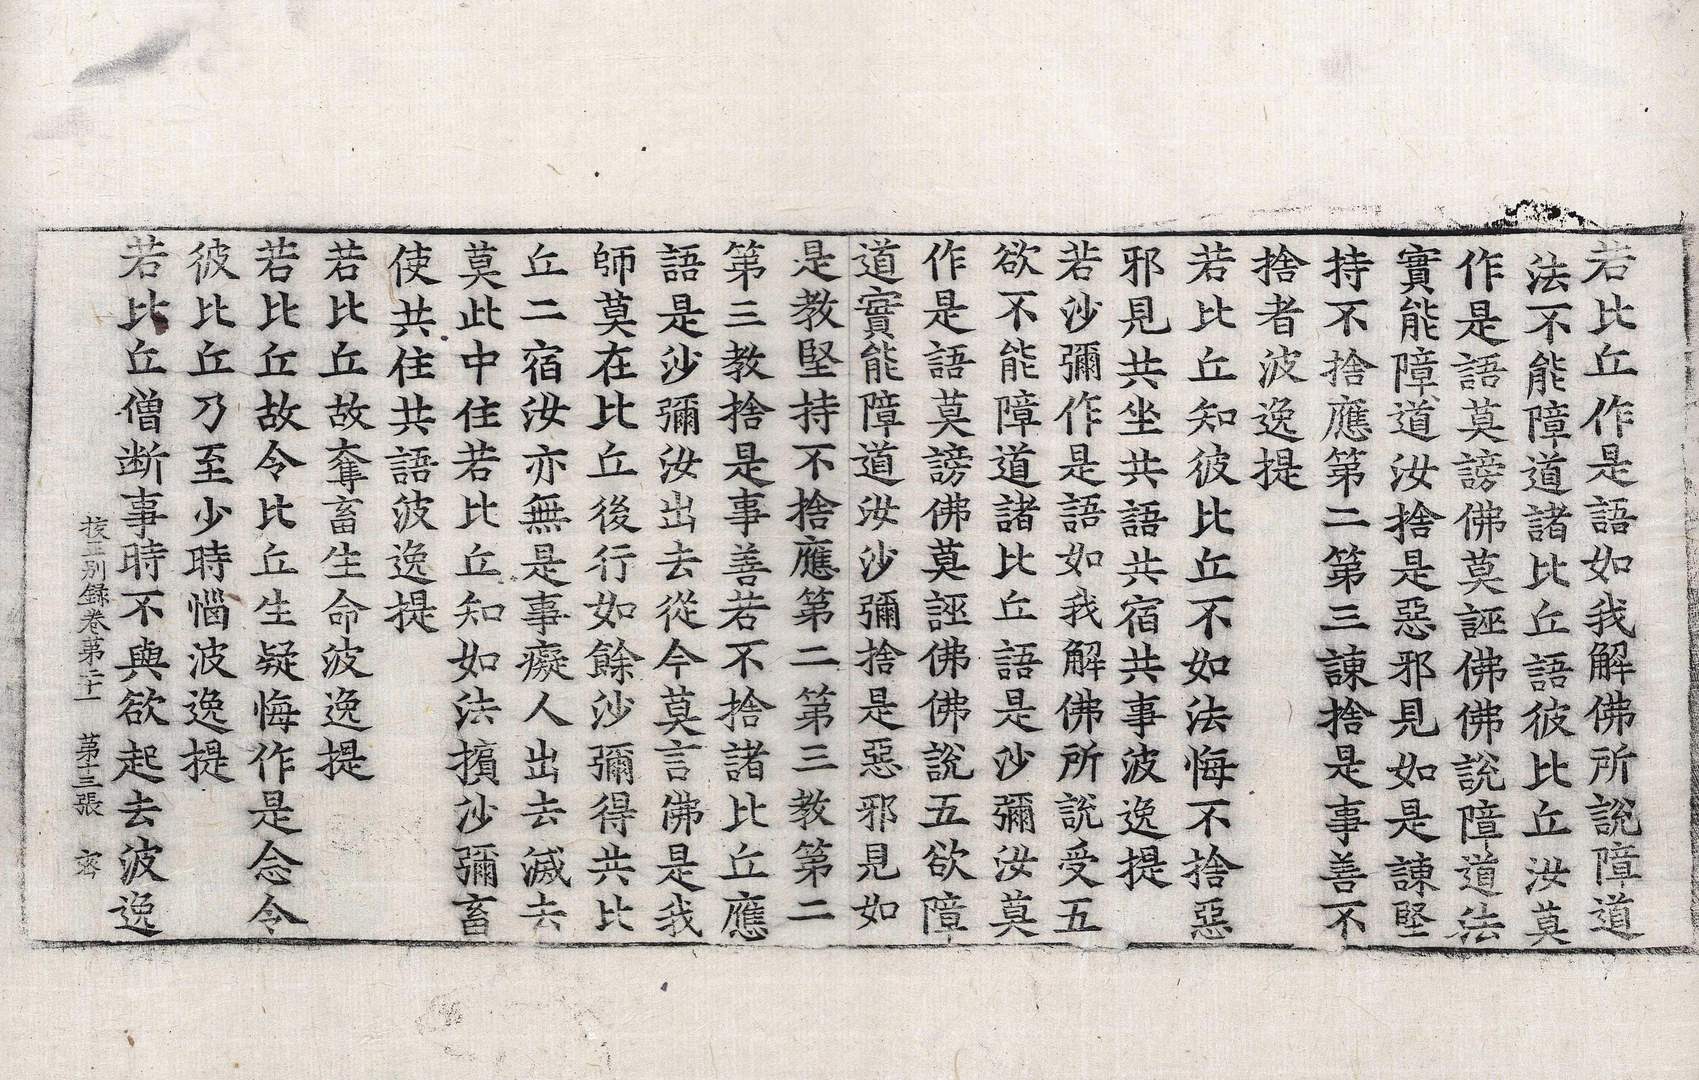 若比丘作是語如我解佛所說障道
法不能障道諸比丘語彼比丘汝莫
作是語莫謗佛莫誣佛佛說障道法
實能障道汝捨是惡邪見如是諫堅
持不捨應第二第三諫捨是事善不
捨者波逸提
若比丘知彼比丘不如法悔不捨惡
邪見共坐共語共宿共事波逸提
若沙彌作是語如我解佛所說受五
欲不能障道諸比丘語是沙彌汝莫
作是語莫謗佛莫誣佛佛說五欲障
道實能障道汝沙彌捨是惡邪見如
是教堅持不捨應第二第三教第二
第三教捨是事善若不捨諸比丘應
語是沙彌汝出去從今莫言佛是我
師莫在比丘後行如餘沙彌得共比
丘二宿汝亦無是事癡人出去滅去
莫此中住若比丘知如法擯沙彌畜
使共住共語波逸提
若比丘故奪畜生命波逸提
若比丘故令比丘生疑悔作是念令
彼比丘乃至少時惱波逸提
若比丘僧断事時不與欲起去波逸
挍正別録卷第二十一　第十三張　密